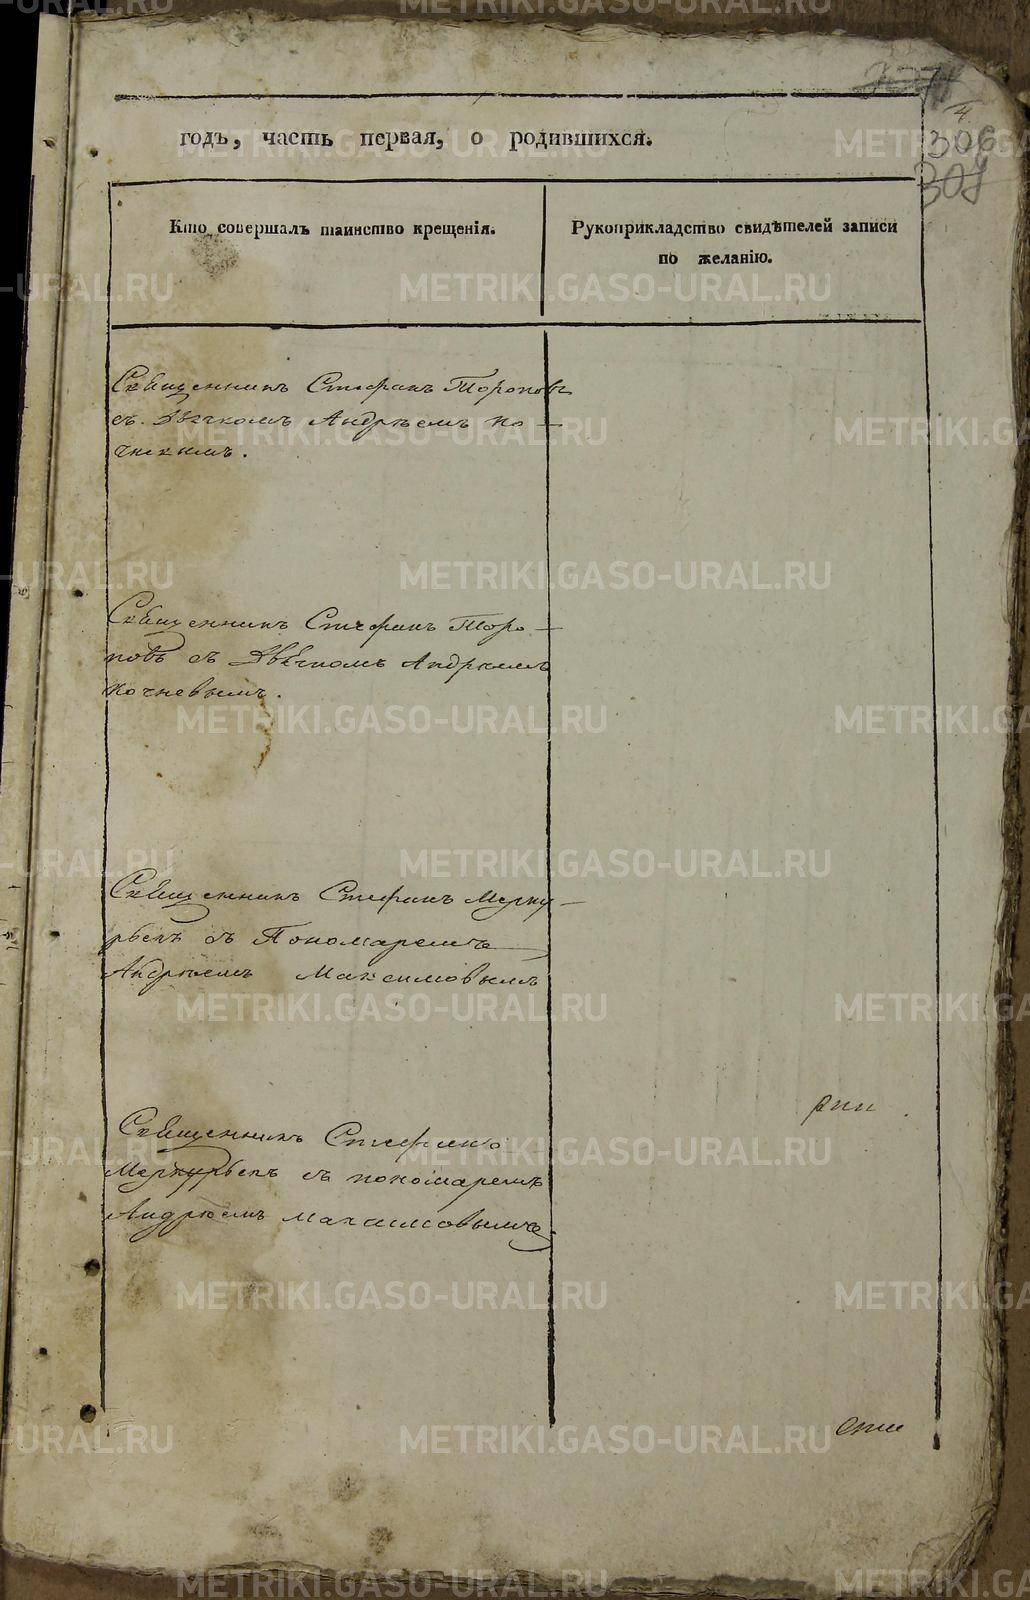 4
306
годъ, часть первая, о родившихся.
Кто совершалъ таинство крещенія.
Рукоприкладство свидѣтелей записи
по желанію.
Священникъ Стефанъ Тороповъ
съ Дьячкомъ Андрѣемъ По-
Священникъ Стефанъ Торо-
повъ съ Дьячкомъ Андреемъ
Почневымъ.
Священникъ Стефанъ Мерку-
рьевъ съ Пономаремъ
Андрѣемъ Максимовымъ
Священникъ Стефанъ
Меркурьевъ съ пономаремъ
Андрѣемъ Максимовымъ.
METRIKI.GASO-URAL.RU